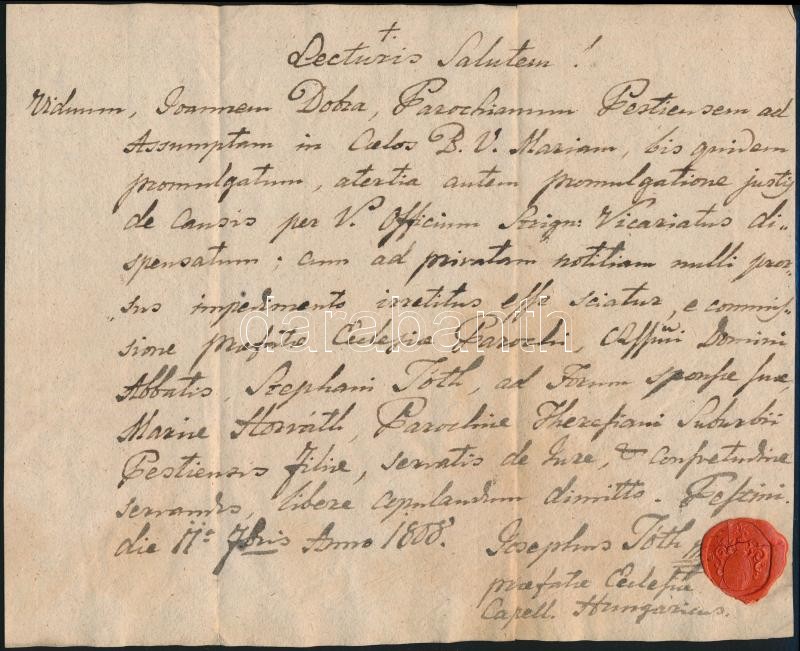 +.
Lecturis Salutem!
Viduum, Joannem Dobra, Parochianum Pestiensem ad
Assumptam in Cœlos B. V. Mariam, bis quidem
promulgatum, a tertia autem promulgatione justis
de Causis per V. Officium Strigo: Vicariatus di„
spensatum; cum ad privatam notitiam nulli pror„
„sus impedimento irretitus esse sciatur, e commis„
sione præfatæ Ecclesiæ Parochi, Domini
Abbatis, Stephani Tóth, ad Forum sponsæ suæ,
Mariæ Horváth, Parochiæ Theresiani Suburbii
Pestiensis filiæ, servatis de Jure, & consvetudine
servandis, libere copulandum dimitto. Pestini.
die 11a 7bris Anno 1808.
Josephus Tóth
præfatæ Ecclesiæ
Capell. Hungaricus.
darabanth